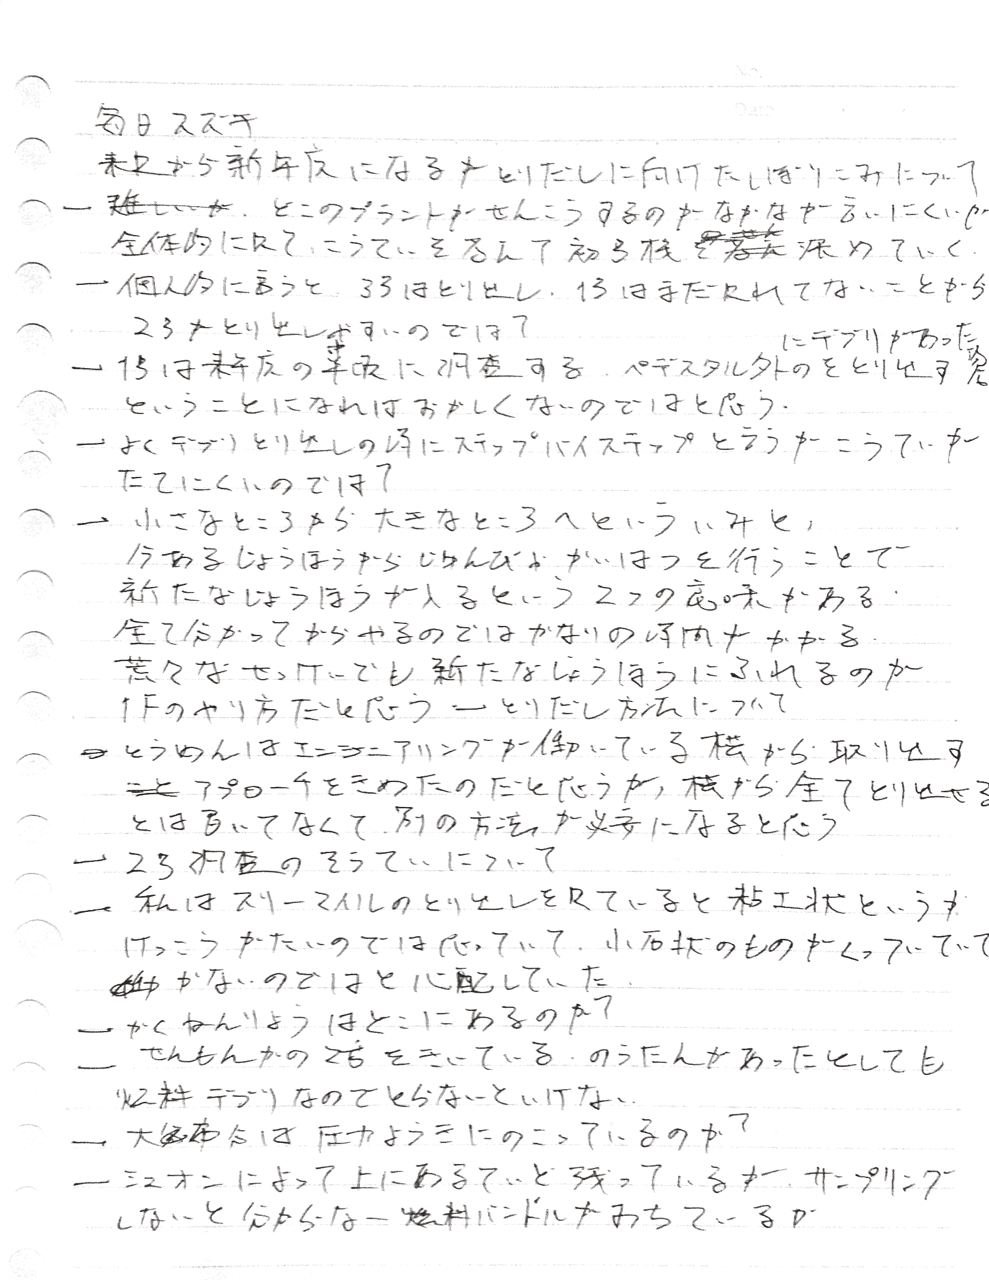 毎日スズキ
末から新年度になるがとりだしに向けたしぼりこみについて
ー 難しいが、どこのプラントがせんこうするのかなかなか言いにくいが
全体的に見て、こうていを 初号機を 深めていく
ー 個人的に言うと、3号はとり出し、1号はまだ見れてないことから
2号がとり出しやすいのでは?
ー 1号は来年度の 調査する、ペデスタル外のをとり出す
にデブリがあった場合
ということになればおかしくないのではと思う。
ー よくデブリとり出しの時にステップバイステップと言うがこうていが
たてにくいのでは?
ー 小さなところから大きなところへといういみと、
今あるじょうほうからじゅんびおかいはつを行うことで
新たなじょうほうが入るという2つの意味がある。
全て分かってからやるのではかなりの時間がかかる。
荒々なせっけいでも新たなじょうほうにふれるのが
1Fのやり方だと思う ーとりだし方法について
とうめんはエンジニアリングが働いている横から取り出す
こと アプローチをきめたのだと思うが、横から全てとり出せる
とは思いてなくて、別の方法が必要になると思う
ー 2号調査のそうていについて
ー 私はスリーマイルのとり出しを見ていると粘土状というか
けっこうかたいのでは思っていて、小石状のものがくっついていて
動かないのではと心配していた。
ー かくねんりょうはどこにあるのか?
ー せんもんかの話をきいている。のうたんがあったとしても
燃料デブリなのでとらないといけない
ー 大部分は圧力ようきにのこっているのか?
ー ミュオンによって上にあるていど残っているが、サンプリング
しないと分からなー燃料バンドルがおちているか